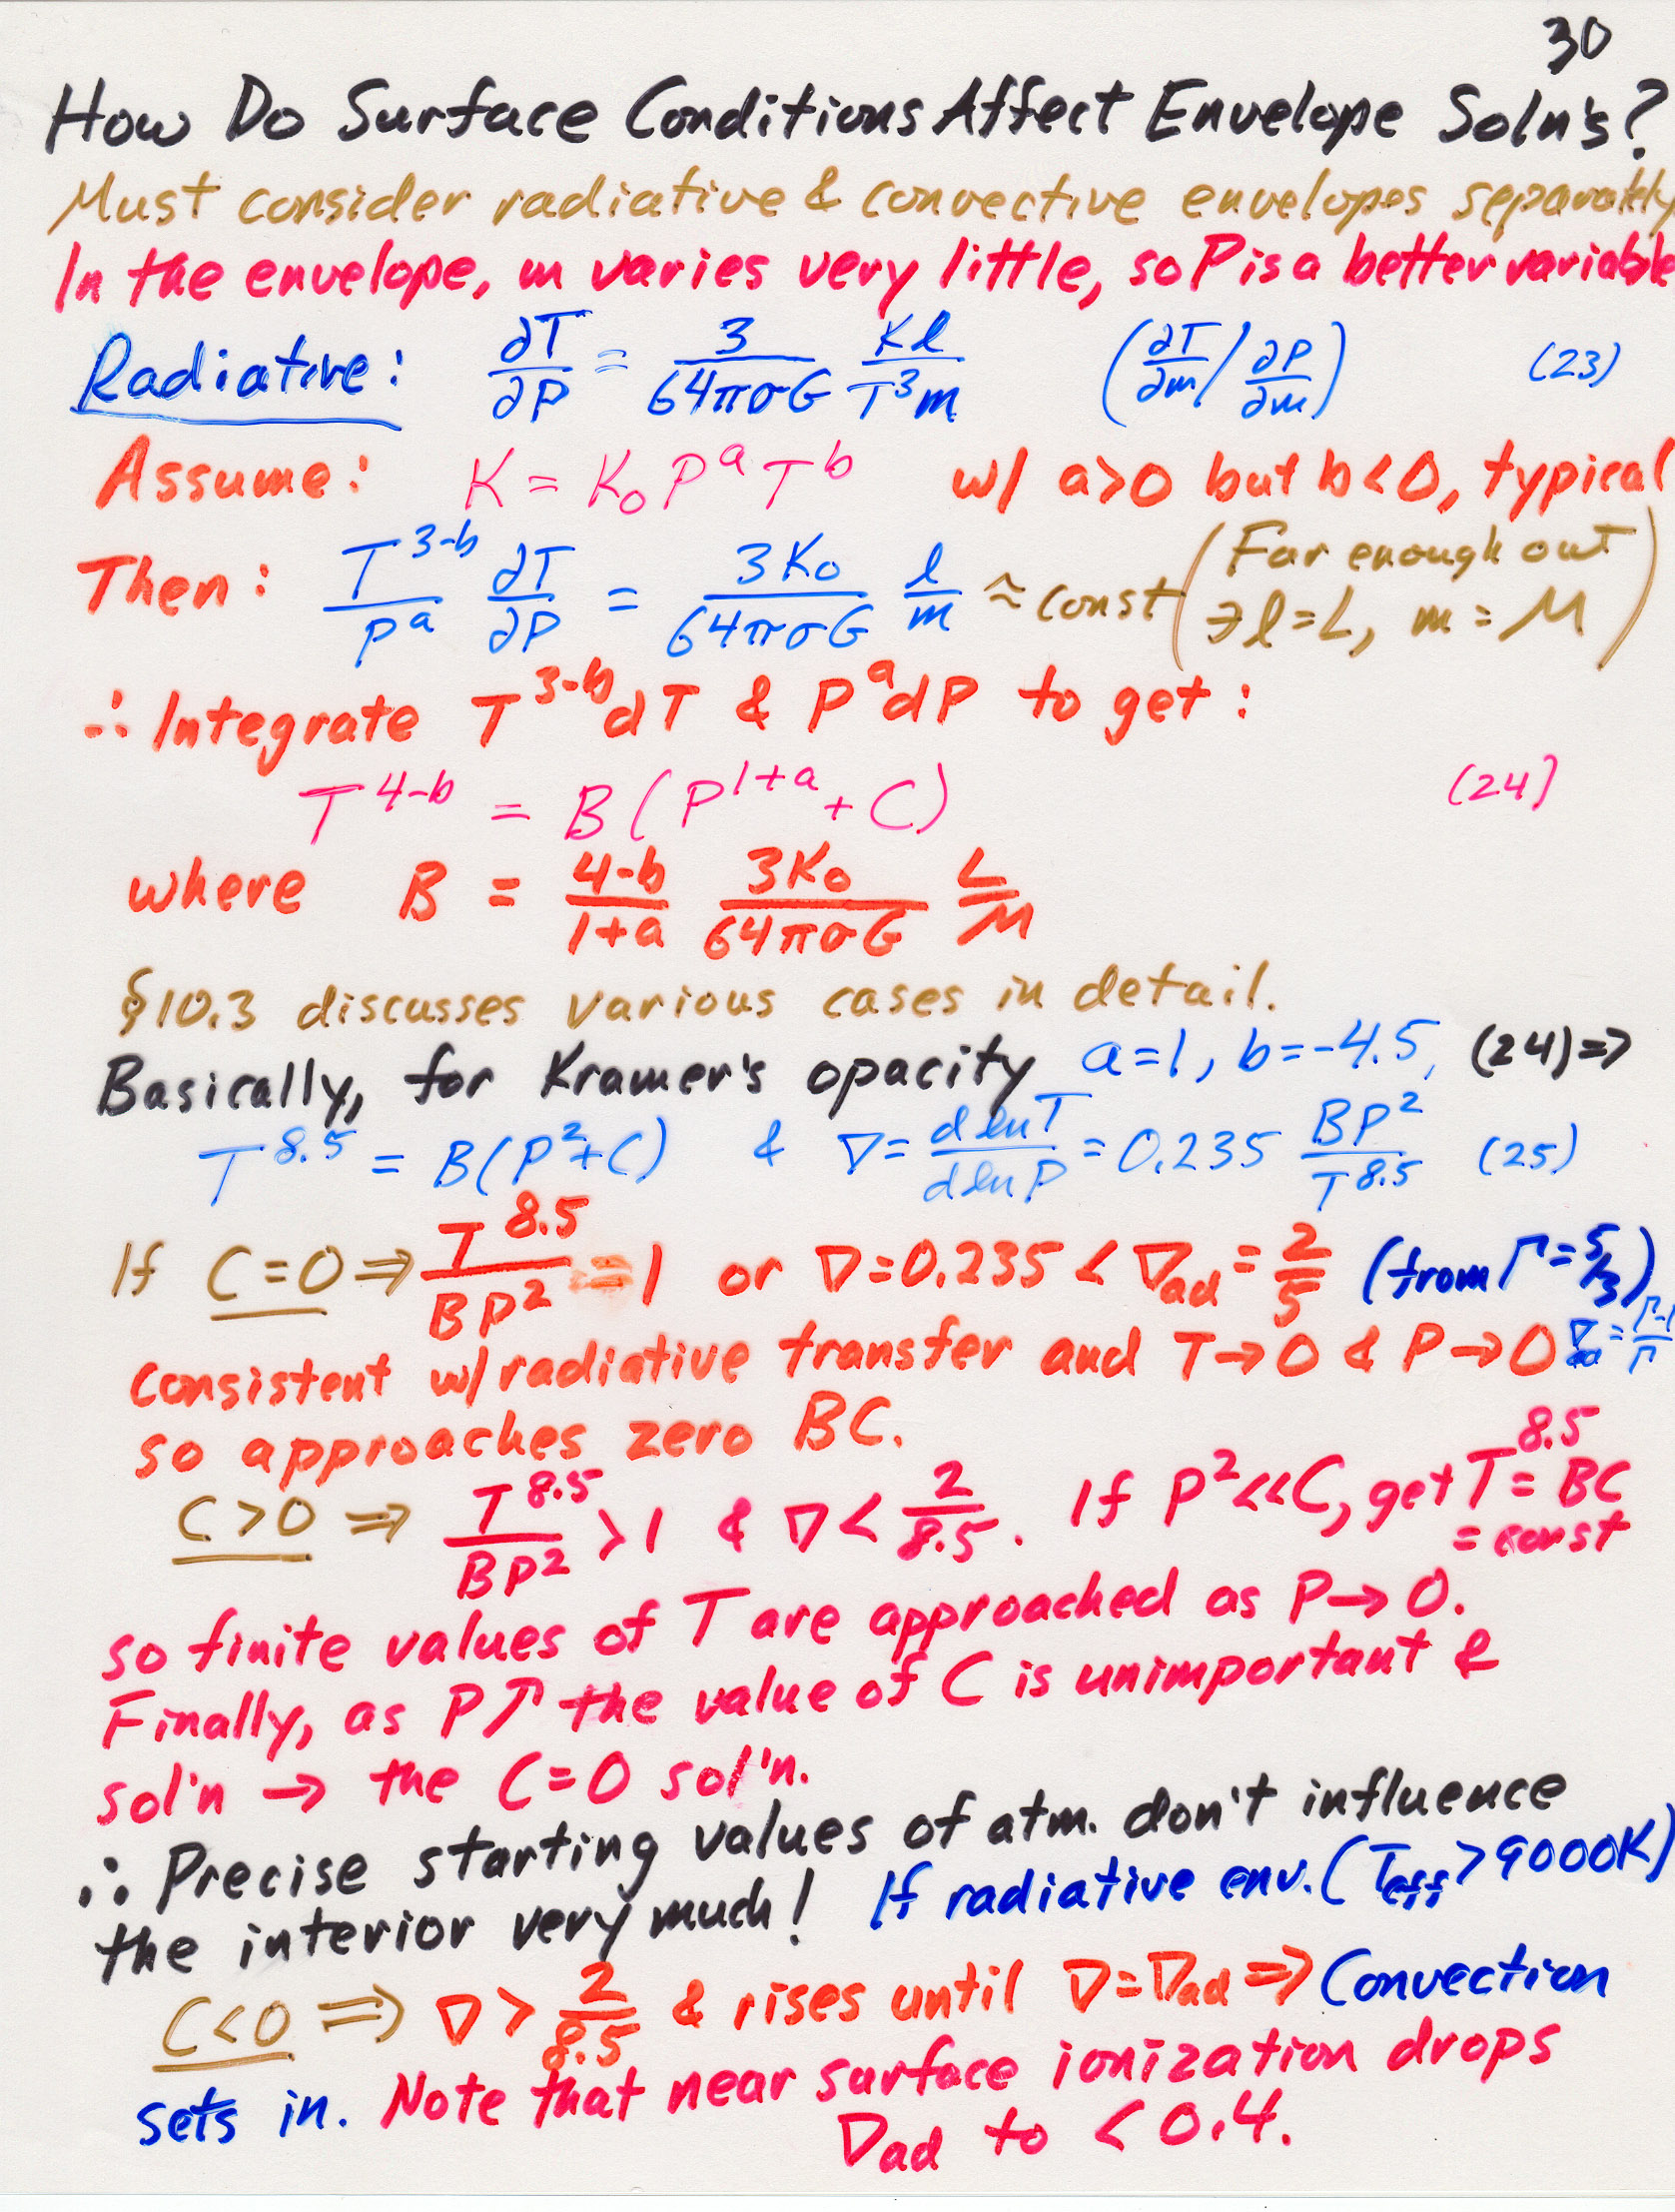 30
How Do Surface Conditions Affect Envelope Soln's?
Must consider radiative & convective envelopes separately
In the envelope, m varies very little, so P is a better variable
Radiative: ∂T/∂P = 3/(64πσG) κl/(T³m) (∂T/∂m / ∂P/∂m) (23)
Assume: κ = κ₀ P^a T^b w/ a>0 but b<0, typical
Then: T^(3-b)/P^a ∂T/∂P = 3κ₀/(64πσG) l/m ≈ const (Far enough out ∋ l=L, m=M)
∴ Integrate T^(3-b) dT & P^a dP to get:
T^(4-b) = B(P^(1+a) + C) (24)
where B = (4-b)/(1+a) 3κ₀/(64πσG) L/M
§10.3 discusses various cases in detail.
Basically, for Kramer's opacity a=1, b=-4.5, (24)⇒
T^8.5 = B(P²+C) & ∇ = d ln T/d ln P = 0.235 BP²/T^8.5 (25)
If C=0 ⇒ T^8.5/BP² = 1 or ∇=0.235 < ∇ad = 2/5 (from Γ=5/3)
consistent w/ radiative transfer and T→0 & P→0 ∇ad = (Γ-1)/Γ
so approaches zero BC.
C>0 ⇒ T^8.5/BP² > 1 & ∇ < 2/8.5. If P²<<C, get T^8.5 = BC
= const
so finite values of T are approached as P→0.
Finally, as P↑ the value of C is unimportant &
sol'n → the C=0 sol'n.
∴ Precise starting values of atm. don't influence
the interior very much! If radiative env. (Teff > 9000K)
C<0 ⇒ ∇ > 2/8.5 & rises until ∇=∇ad ⇒ Convection
sets in. Note that near surface ionization drops
∇ad to < 0.4.